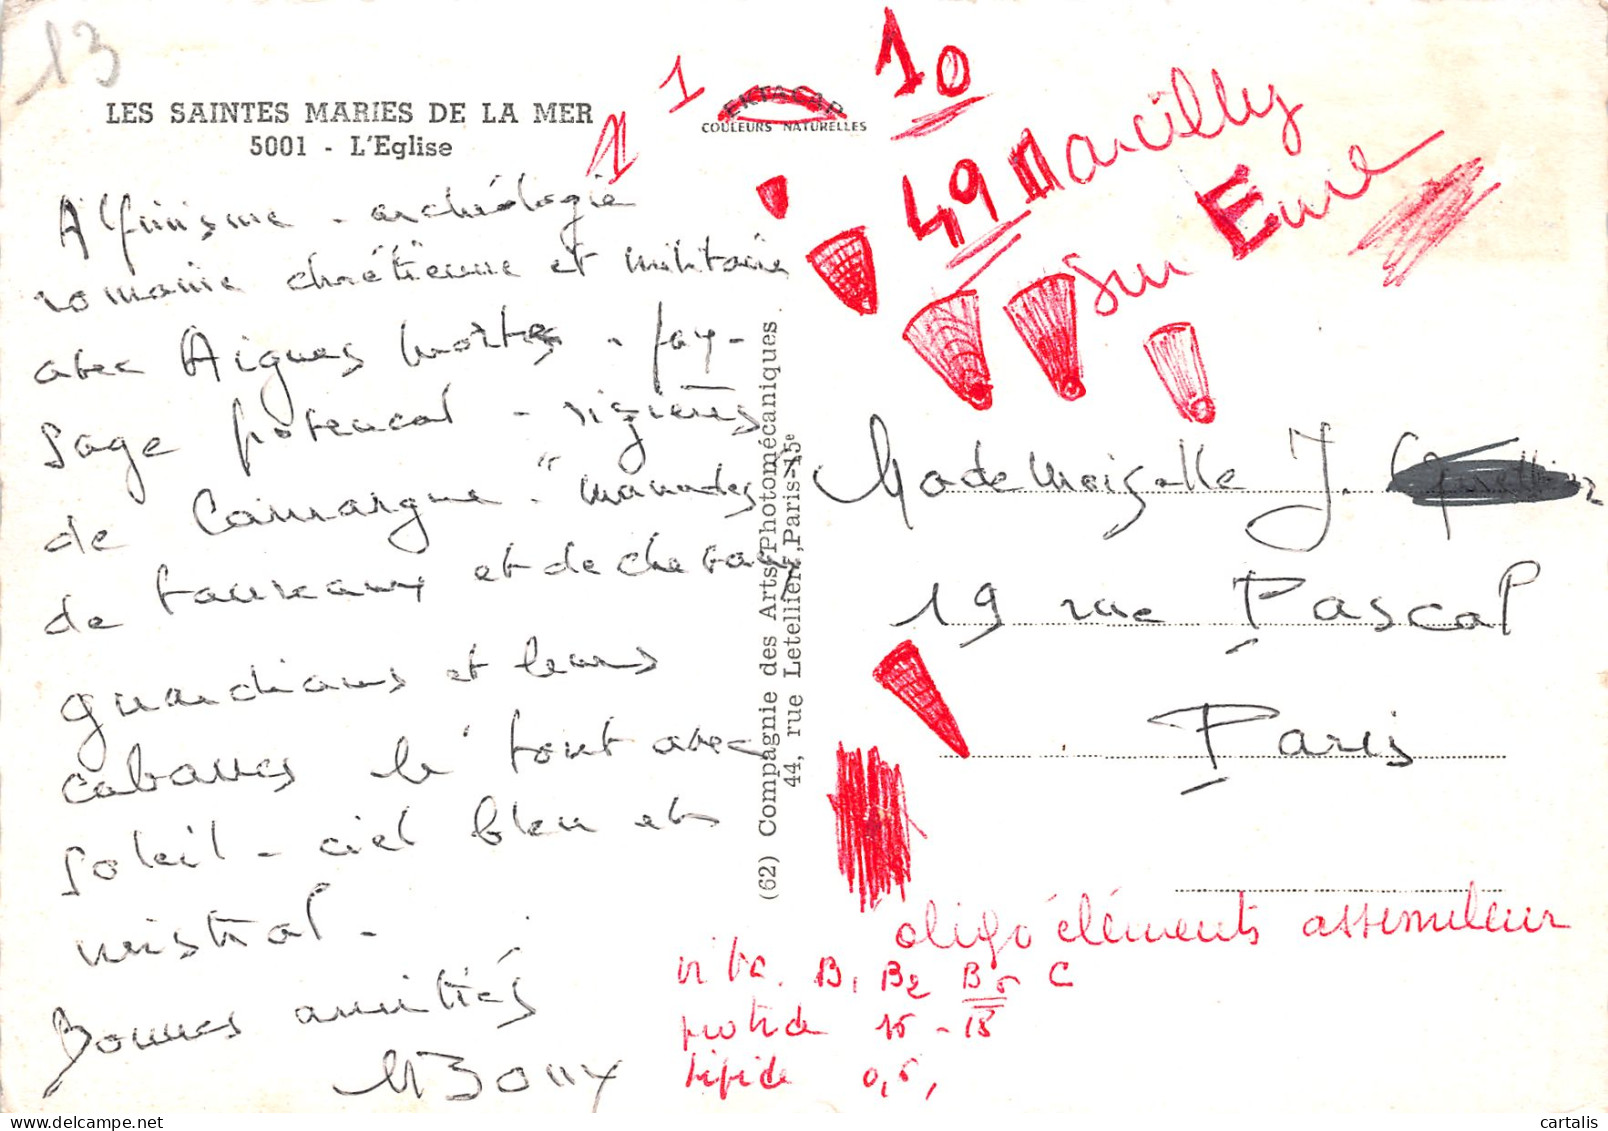 13
LES SAINTES MARIES DE LA MER
5001 - L'Eglise
1
1
EKTACAP
COULEURS NATURELLES
10
49 Marcilly
sur Eure
Alpinisme - archéologie
romaine chrétienne et militaire
avec Aigues Mortes - pay-
sage provencal - rizières
de Camargue - "manades"
de taureaux et de chevaux
guardians et leurs
cabanes le tout avec
soleil - ciel bleu et
mistral -
Bonnes amitiés
M Bouy
(62) Compagnie des Arts Photomécaniques
44, rue Letellier, Paris-15e
Mademoiselle J.
19 rue Pascal
Paris
oligo éléments assemileur
vita. B1 B2 B6 C
protide 15 - 18
lipide 0,5,
cartalis.com